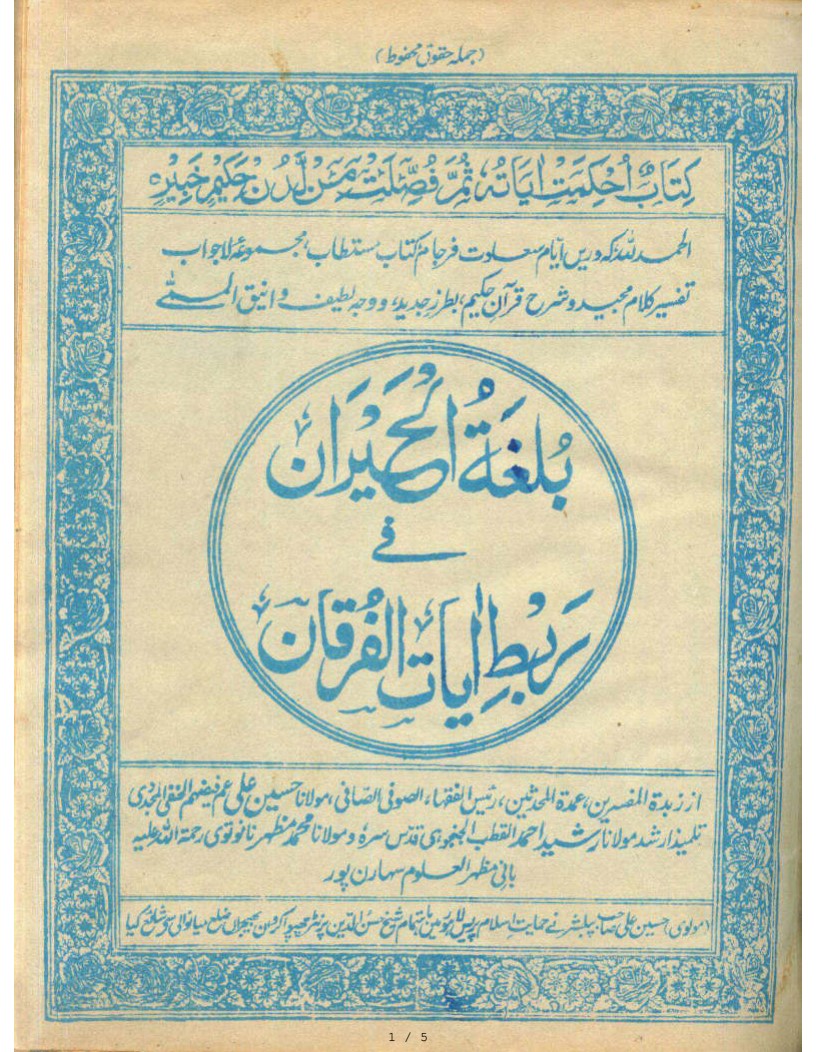 (جملہ حقوق محفوظ)
كِتَابٌ اُحْكِمَتْ اٰيَاتُهٗ ثُمَّ فُصِّلَتْ مِنْ لَّدُنْ حَكِيْمٍ خَبِيْرٍ
الحمد للہ کہ دریں ایام سعادت فرجام کتاب مستطاب، مجموعۂ لاجواب
تفسیر کلام مجید و شرح قرآن حکیم، بطرز جدید، ووجہ لطیف وانیق المسمّٰی
بُلغَةُ الْحَيْرَان
فے
رَبْطِ اٰيَاتِ الْفُرْقَان
از زبدة المفسرین، عمدة المحدثین، رئیس الفقہاء، الصوفی الصافی، مولانا حسین علی عم فیضہم النقی المجددی
تلمیذ ارشد مولانا رشید احمد القطب الجنجوہی قدس سرہ و مولانا محمد مظہر نانوتوی رحمة اللہ علیہ
بانی مظہر العلوم سہارن پور
(مولوی) حسین علی صاحب پبلشر نے حمایت اسلام پریس لاہور میں باہتمام شیخ حسن الدین پرنٹر چھپوا کر واں بھچراں ضلع میانوالی سے شائع کیا
1 / 5